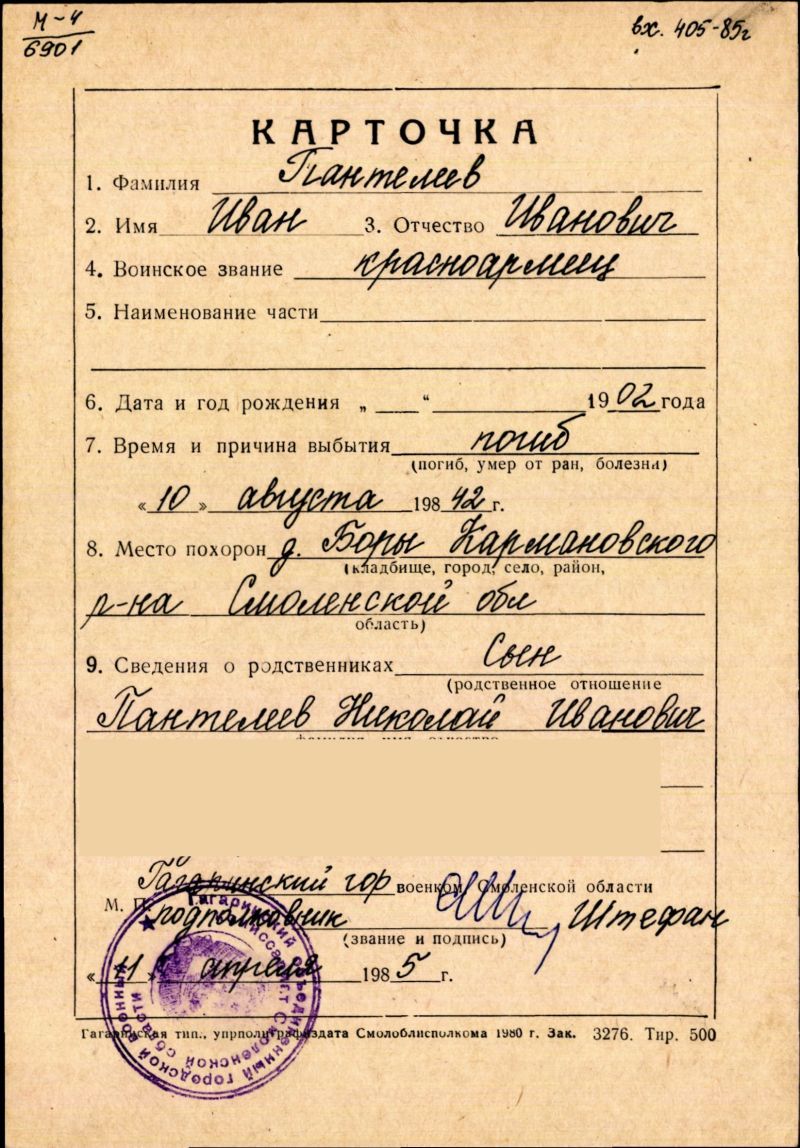 М-4
6901
вх. 405-85г
КАРТОЧКА
1. Фамилия Пантелеев
2. Имя Иван 3. Отчество Иванович
4. Воинское звание красноармеец
5. Наименование части
6. Дата и год рождения „ “ 1902 года
7. Время и причина выбытия погиб
(погиб, умер от ран, болезни)
«10» августа 198 42 г.
8. Место похорон д. Боры Кармановского
(кладбище, город, село, район,
р-на Смоленской обл
область)
9. Сведения о родственниках Сын
(родственное отношение
Пантелеев Николай Иванович
фамилия имя отчество
Гагаринский гор военком Смоленской области
М. П. подполковник Штефан
(звание и подпись)
«11» апреля 1985 г.
Гагаринский объединенный городской военный комиссариат Смоленской области
Гагаринская тип., упрполиграфиздата Смолоблисполкома 1980 г. Зак. 3276. Тир. 500